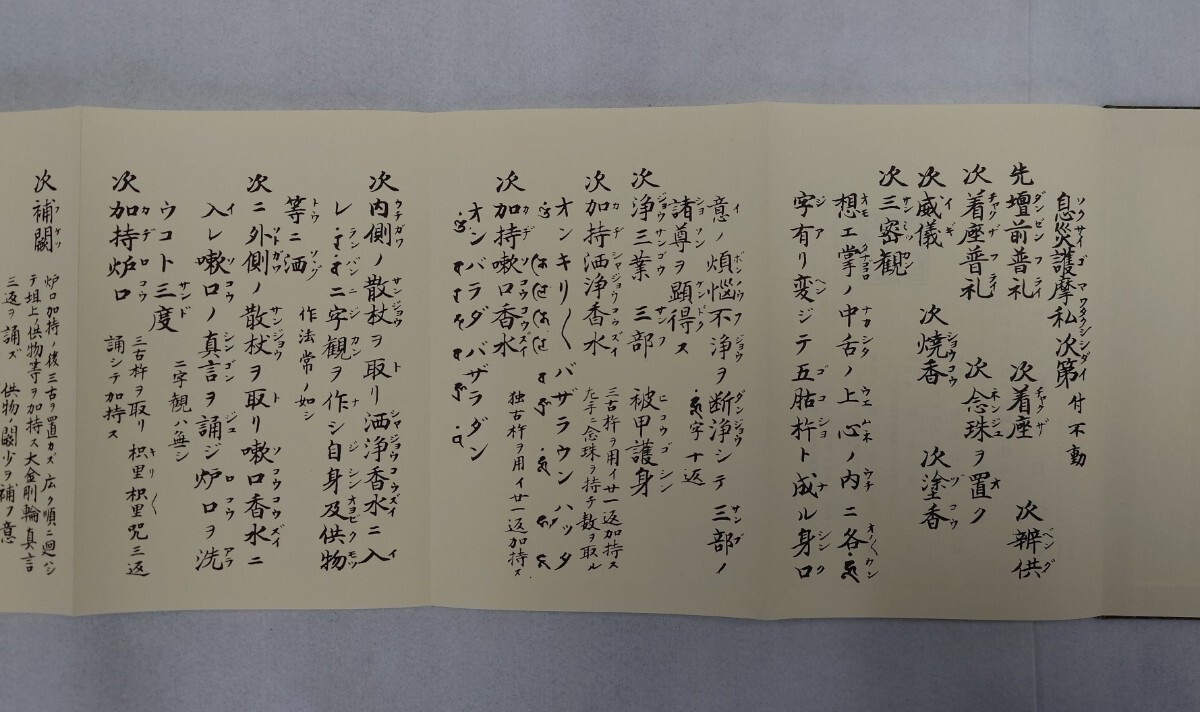 息災護摩私次第 付不動
先壇前普礼 次着座 次辨供
次着座普礼 次念珠ヲ置ク
次威儀 次焼香 次塗香
次三密観
想エ掌ノ中舌ノ上心ノ内ニ各
字有リ変ジテ五肱杵ト成ル身口
意ノ煩悩不浄ヲ断浄シテ三部ノ
諸尊ヲ顕得ス 字十返
次浄三業 三部 被甲護身
次加持洒浄香水 三古杵ヲ用イ廿一返加持ス
左手ニ念珠ヲ持チ数ヲ取ル
オンキリ〱バザラウンハッタ
次加持嗽口香水 独古杵ヲ用イ廿一返加持ス
オンバラダバザラダン
次内側ノ散杖ヲ取リ洒浄香水ニ入
レ 二字観ヲ作シ自身及供物
等ニ洒 作法常ノ如シ
次ニ外側ノ散杖ヲ取リ嗽口香水ニ
入レ嗽口ノ真言ヲ誦ジ炉口ヲ洗
ウコト三度 二字観ハ無シ
次加持炉口 三古杵ヲ取リ枳里枳里咒三返
誦シテ加持ス
次補闕 炉口加持ノ後三古ヲ置カズ広ク順ニ迴ハシ
テ坦上ノ供物等ヲ加持ス大金剛輪真言
三返ヲ誦ズ 供物ノ闕少ヲ補フ意